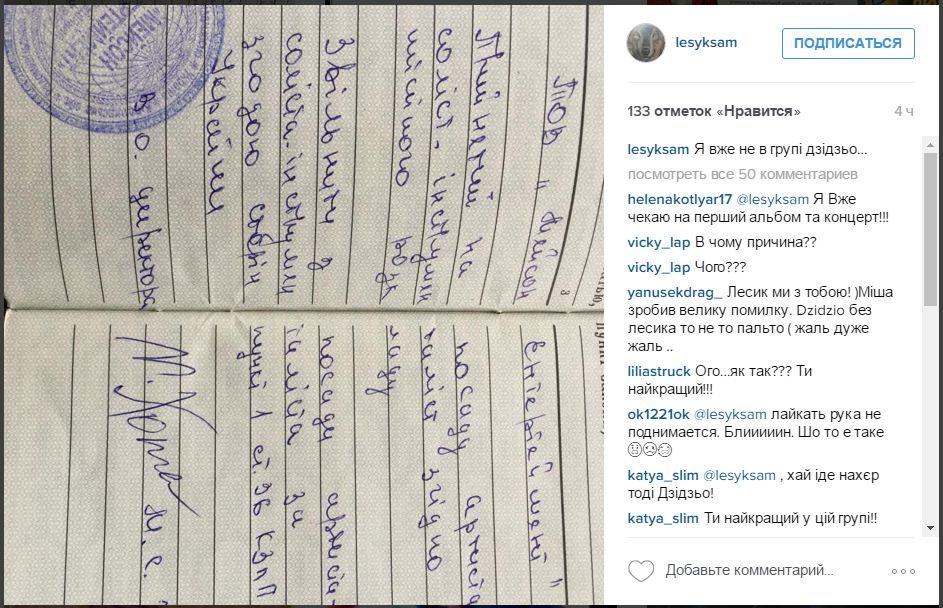 ТОВ "Мейсон Ентертеймент"
Прийнятий на посаду артиста
соліст-інструменталіст згідно
розкладу
Звільнити з посади артиста-
соліста-інструменталіста за
згодою сторін пункт 1 ст.36 КЗпП
України
В.о. директора М.С.
lesyksam ПОДПИСАТЬСЯ
133 отметок «Нравится» 4 ч
lesyksam Я вже не в групі дзідзьо...
посмотреть все 50 комментариев
helenakotlyar17 @lesyksam Я Вже
чекаю на перший альбом та концерт!!!
vicky_lap В чому причина??
vicky_lap Чого???
yanusekdrag_ Лесик ми з тобою! )Міша
зробив велику помилку. Dzidzio без
лесика то не то пальто ( жаль дуже
жаль ..
liliastruck Ого...як так??? Ти
найкращий!!!
ok1221ok @lesyksam лайкать рука не
поднимается. Блиииин. Шо то е таке
katya_slim @lesyksam , хай іде нахєр
тоді Дзідзьо!
katya_slim Ти найкращий у цій групі!!
Добавьте комментарий...